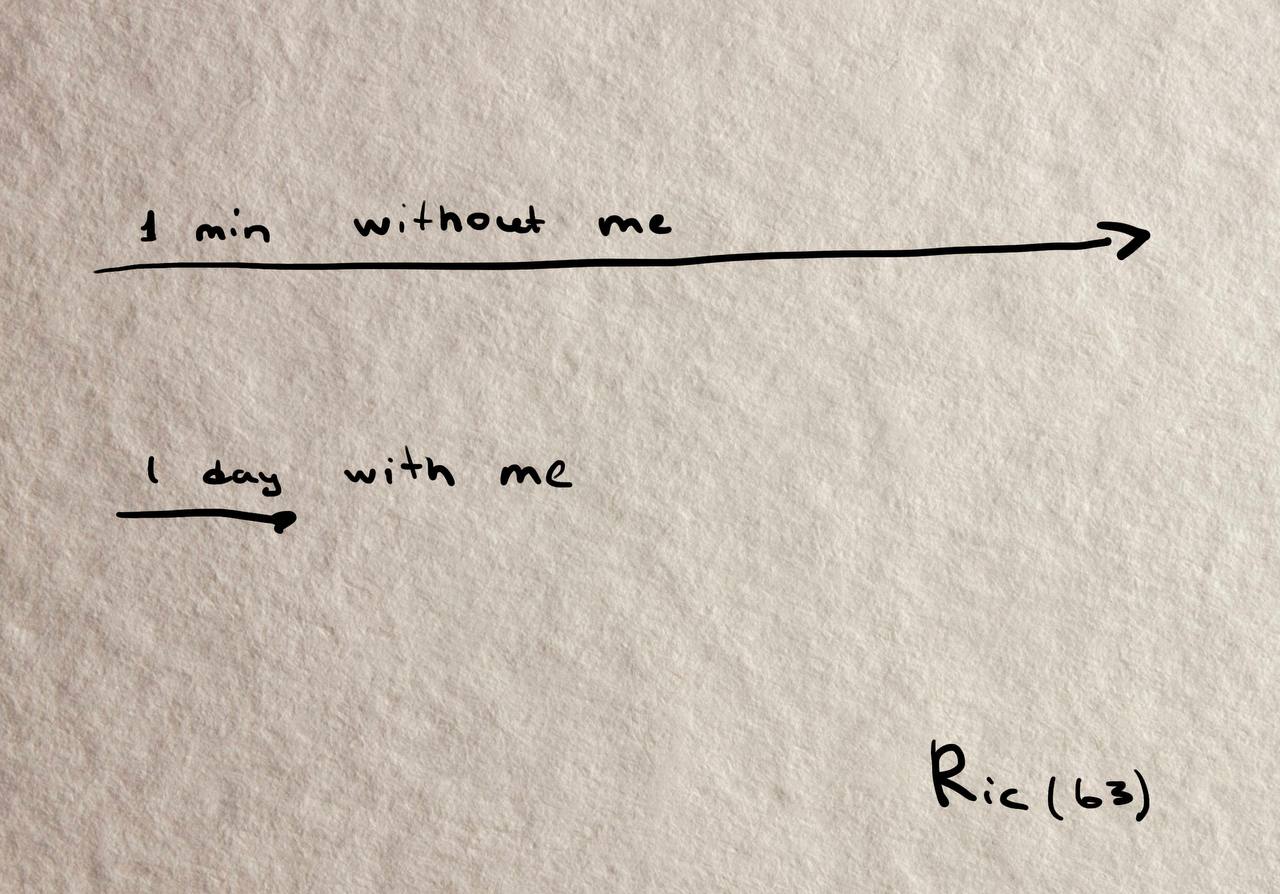 1 min without me
1 day with me
Ric (63)